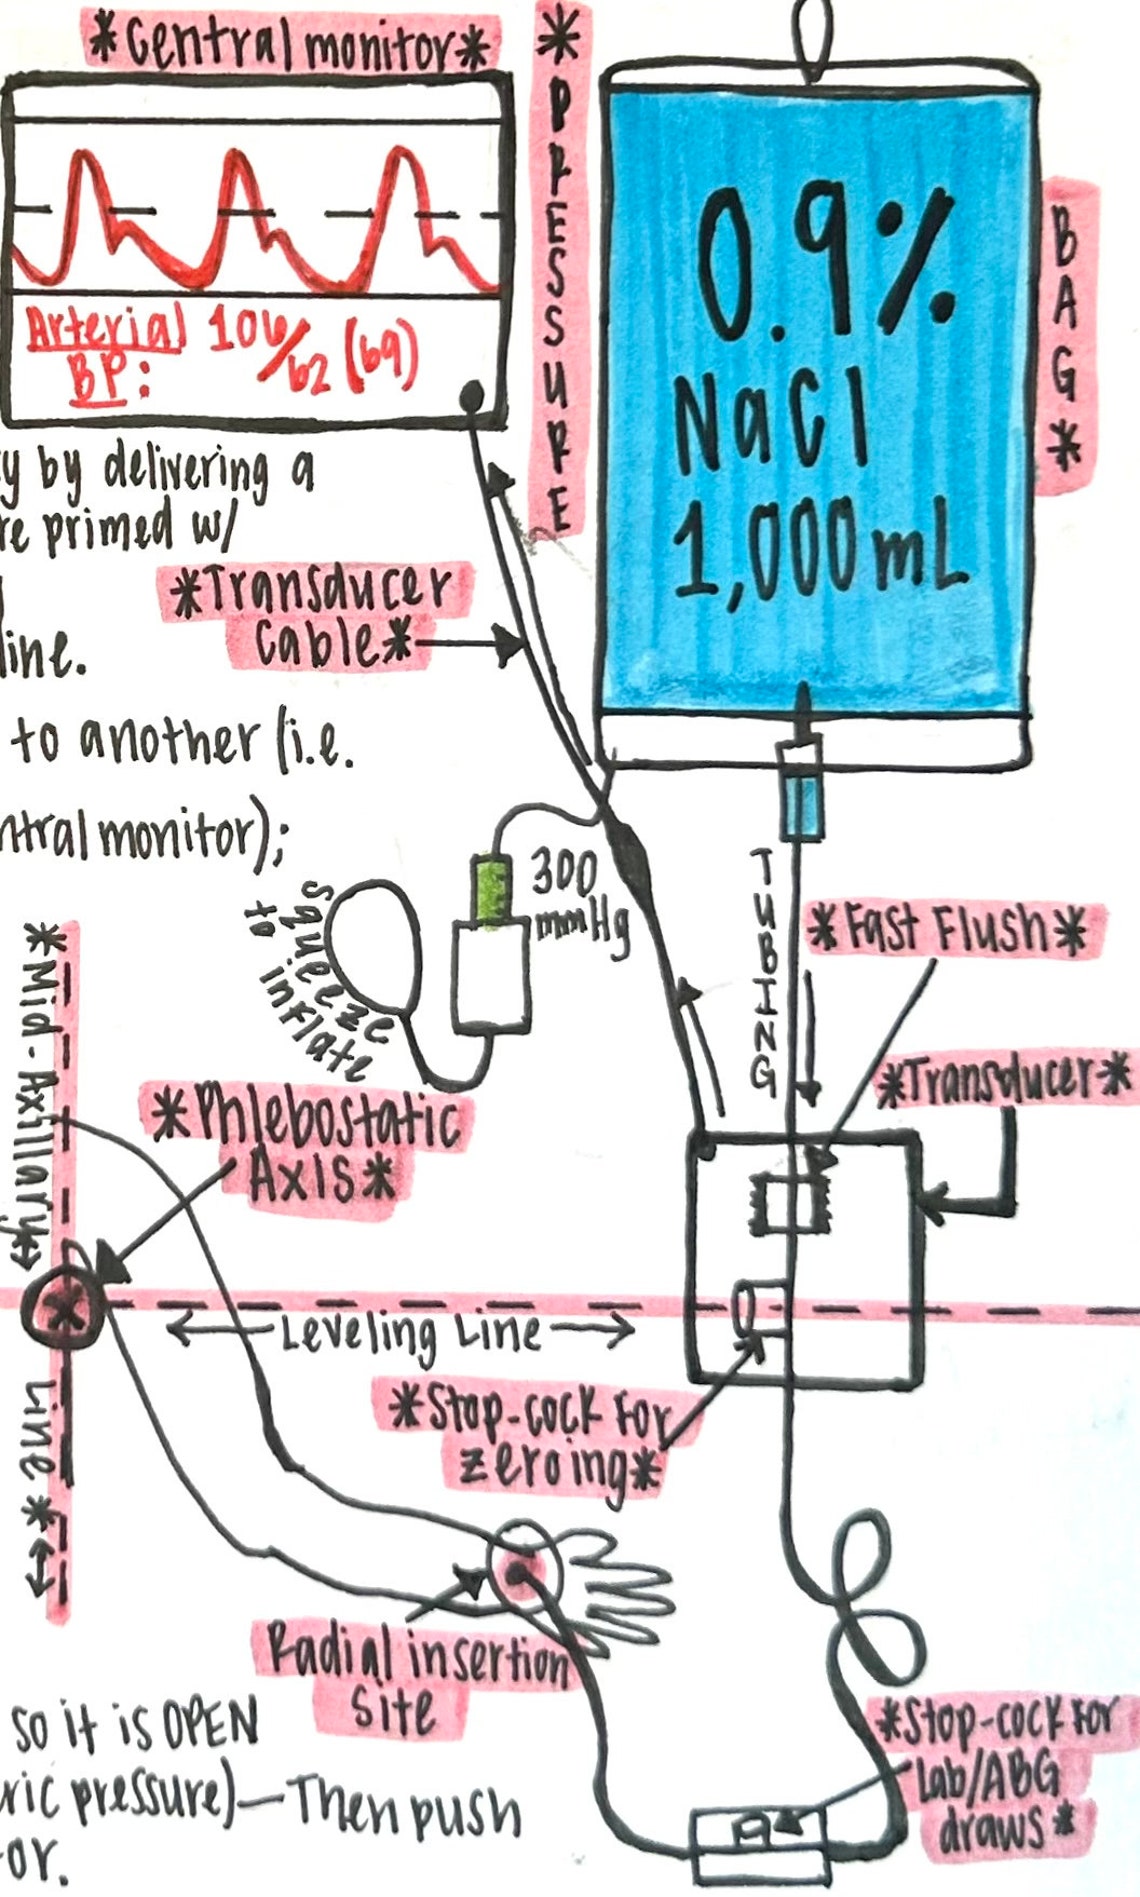 *Central monitor*
*PRESSURE
BAG*
0.9%
NaCl
1,000 mL
Arterial 106/62 (69)
BP:
by delivering a
primed w/
*Transducer
Cable*
line.
to another (i.e.
monitor);
300
mmHg
squeeze
to inflate
TUBING
*Fast Flush*
*Transducer*
*Mid-Axillary
Line*
*Phlebostatic
Axis*
*
Leveling Line
*Stop-cock For
zeroing*
Radial insertion
Site
so it is OPEN
pressure)—Then push
*Stop-cock For
Lab/ABG
draws*